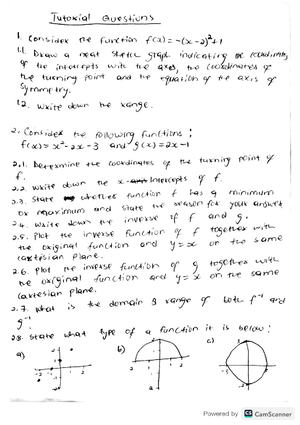 Tutorial Questions
1. Consider the function f(x) = -(x-2)²+1
1.1. Draw a neat sketch graph indicating the coordinates
of the intercepts with the axes, the coordinates of
the turning point and the equation of the axis of
symmetry.
1.2. Write down the range.
2. Consider the following functions:
f(x) = x²-2x-3 and g(x) = 2x-1
2.1. Determine the coordinates of the turning point of
f.
2.2. Write down the x-intercepts of f.
2.3. State whether function f has a minimum
or maximum and state the reason for your answer
2.4. Write down the inverse of f and g.
2.5. Plot the inverse function of f together with
the original function and y=x on the same
cartesian plane.
2.6. Plot the inverse function of g together with
the original function and y=x on the same
cartesian plane.
2.7. What is the domain & range of both f⁻¹ and
g⁻¹
2.8. State what type of a function it is below:
a) b) c)
Powered by CS CamScanner